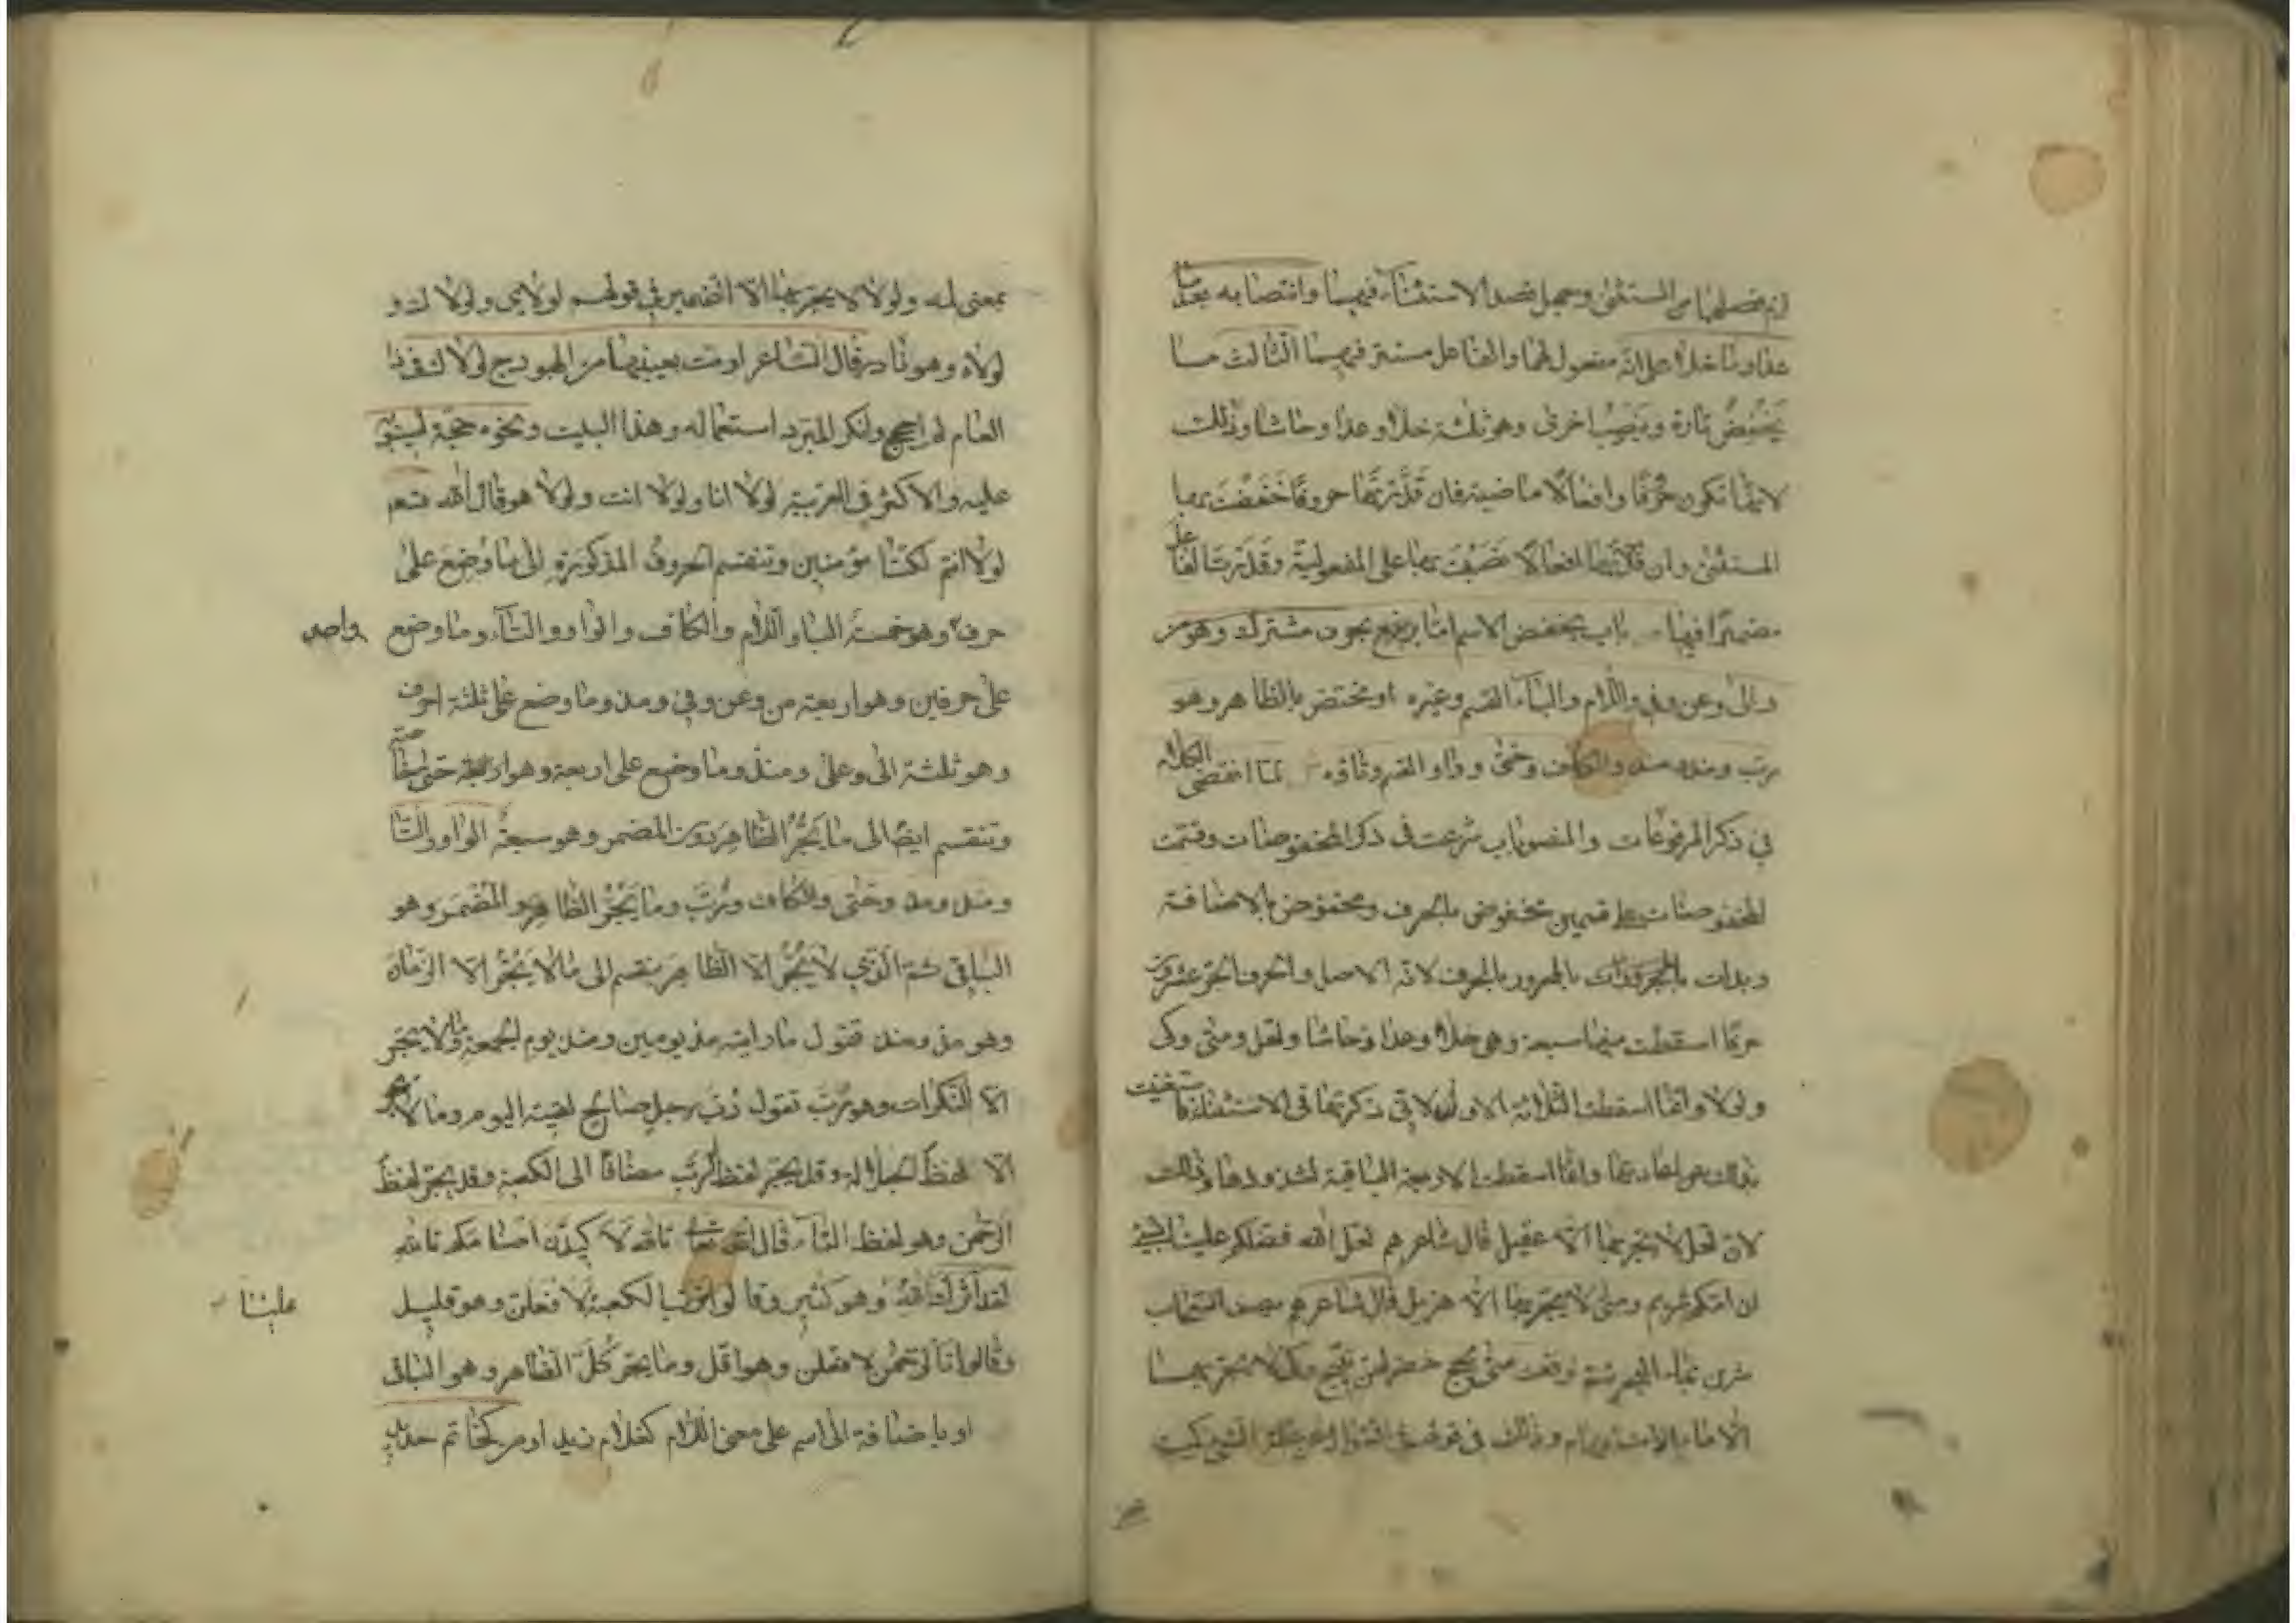 لزم فصلهما من المستثنى وجهل قصد الاستثناء فيهما وانتصابه بعد ما
عدا وما خلا على انه مفعول لهما والفاعل مستتر فيهما الثالث ما
يَخْفِضُ تارة ويَنصِبُ اخرى وهو ثلثة خلا وعدا وحاشا وذلك
لانها تكون حُرُوفًا وافعالا ماضية فان قَدَّرْتَهَا حروفًا خَفَضْتَ بها
المستثنى وان قدّرتها افعالا نَصَبْتَ بها على المفعولية وقدّرت الفاعل
مضمرًا فيها باب يخفض الاسم اما بحرف مشترك وهو من
والى وعن وفي واللام والباء للقسم وغيره او مختص بالظاهر وهو
ربّ ومذ ومنذ والكاف وحتى وواو القسم وتاؤه لما انقضى الكلام
في ذكر المرفوعات والمنصوبات شرعت في ذكر المخفوضات وقسمت
المخفوضات على قسمين مخفوض بالحرف ومخفوض بالاضافة
وبدات بالمجرور بالحرف لانه الاصل والحروف الجر عشرون
حرفًا اسقطت منها سبعة وهي خلا وعدا وحاشا ولعل ومتى وكى
ولولا وانما اسقطت الثلاثة الاول لاني ذكرتها في الاستثناء فاستغنيت
بذلك عن اعادتها وانما اسقطت الاربعة الباقية لشذوذها وذلك
لان لعل لا يجر بها الا عقيل قال شاعرهم لعل الله فضلكم علينا بشئ
ان امكم شريم ومتى لا يجر بها الا هذيل قال شاعرهم يصف السحاب
شربن بماء البحر ثم ترفعت متى لجج خضر لهن نئيج وكى لا يجر بها
الا ما الاستفهامية وذلك في قولهم في السؤال عن علة الشئ كيمه
بمعنى لمه ولولا لا يجر بها الا الضمير في قولهم لولاى ولولاك و
لولاه وهو نادر قال الشاعر اومت بعينيها من الهودج لولاك في ذا
العام لم احجج وانكر المبرد استعماله وهذا البيت ونحوه حجة لسيبويه
عليه والاكثر في العربية لولا انا ولولا انت ولولا هو قال الله تعم
لولا انتم لكنّا مؤمنين وتنقسم الحروف المذكورة الى ما وُضِعَ على
حرف وهو خمسة الباء واللام والكاف والواو والتاء وما وضع واحد
على حرفين وهو اربعة من وعن وفي ومذ وما وضع على ثلثة احرف
وهو ثلثة الى وعلى ومنذ وما وضع على اربعة وهو حتى خاصة
وتنقسم ايضًا الى ما يَجُرُّ الظاهرَ دون المضمر وهو سبعةٌ الواو والتا
ومنذ ومذ وحتى والكاف ورُبَّ وما يَجُرُّ الظاهرِ والمُضْمَر وهو
البواقي ثم الذي لا يَجُرُّ الا الظاهرَ ينقسم الى ما لا يَجُرُّ الا الزمان
وهو مذ ومنذ تقول ما رايته مذ يومين ومنذ يوم الجمعة وما لا يجر
الا النكرات وهو رُبَّ تقول رُبَّ رجلٍ صالحٍ لقيته اليوم وما لا يجر
الا لفظَ الجلالة وقد يجر لفظ الربّ مضافًا الى الكعبة وقد يجر لفظ
الرحمن وهو لفظ التاء قال الله تعالى تالله لاكيدن اصنامكم تالله
لقد آثرك الله وهو كثير وقالوا تربّ الكعبة لافعلن وهو قليل علينا
وقالوا تالرحمن لافعلن وهو اقل وما يجر كُلَّ الظاهر وهو الباقى
او باضافة الى اسم على معنى اللام كغلام زيد او من كخاتم حديد